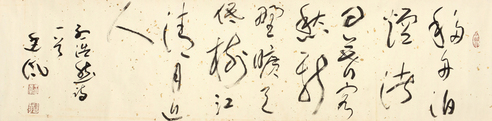 移舟泊
煙渚
日暮客
愁新
野曠天
低樹江
清月近
人
孟浩然詩
一首